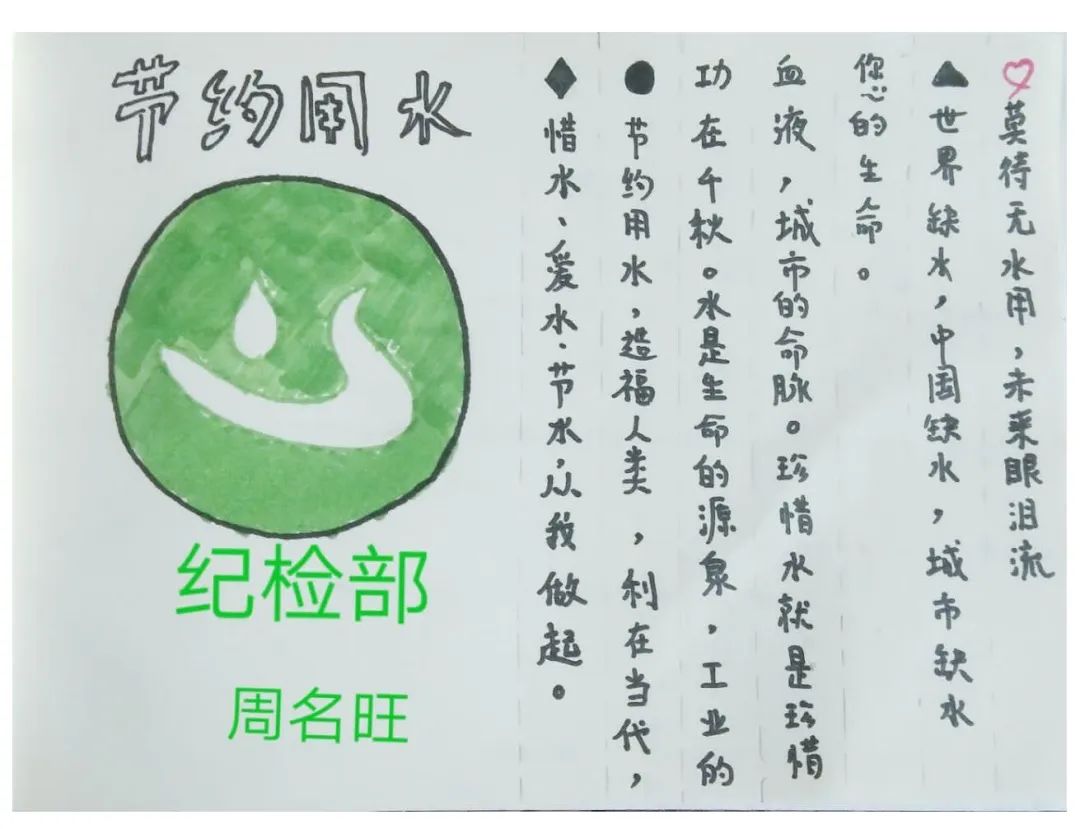 节约用水
纪检部
周名旺
◆惜水、爱水、节水,从我做起。
●节约用水,造福人类,利在当代,
功在千秋。水是生命的源泉,工业的
血液,城市的命脉。珍惜水就是珍惜
您的生命。
▲世界缺水,中国缺水,城市缺水
♡莫待无水用,未来眼泪流